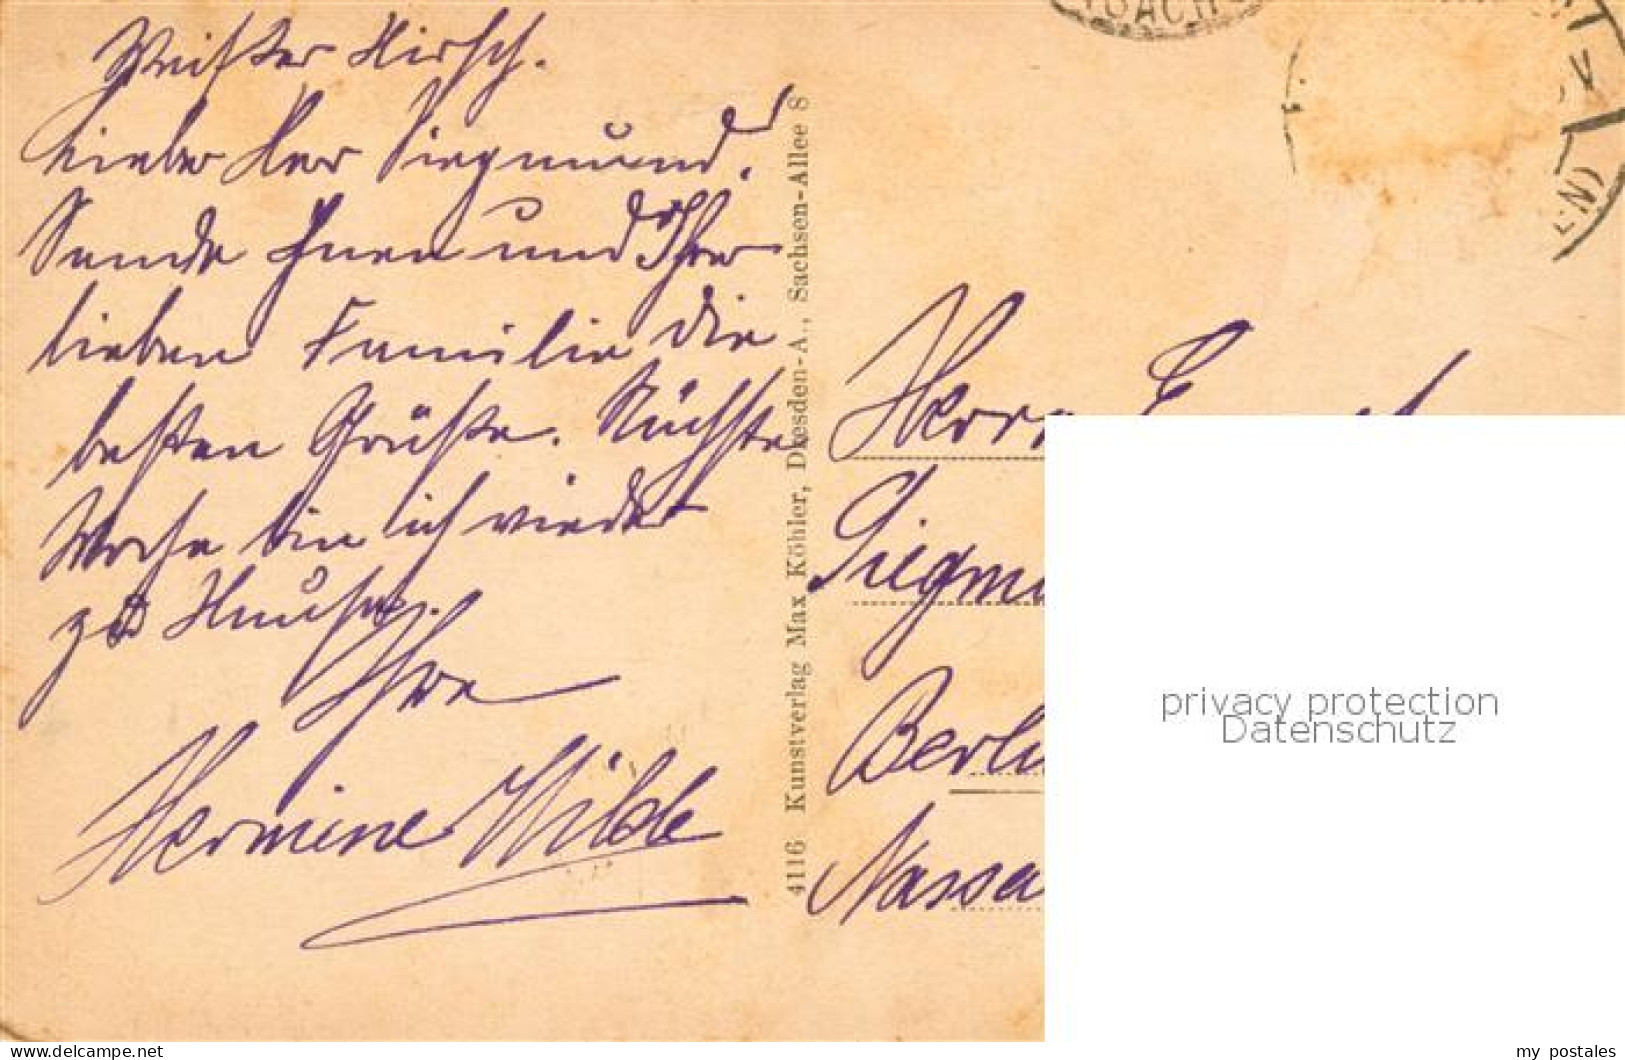 Weißer Hirsch.
Lieber Herr Siegmund.
Sende Ihnen und Ihrer
lieben Familie die
besten Grüße. Nächste
Woche bin ich wieder
zu Hause.
Ihre
Hermine Wilde
4116 Kunstverlag Max Köhler, Dresden-A., Sachsen-Allee 8
Herrn
Siegmu
Berlin
Nassa
privacy protection
Datenschutz
www.delcampe.net
my_postales